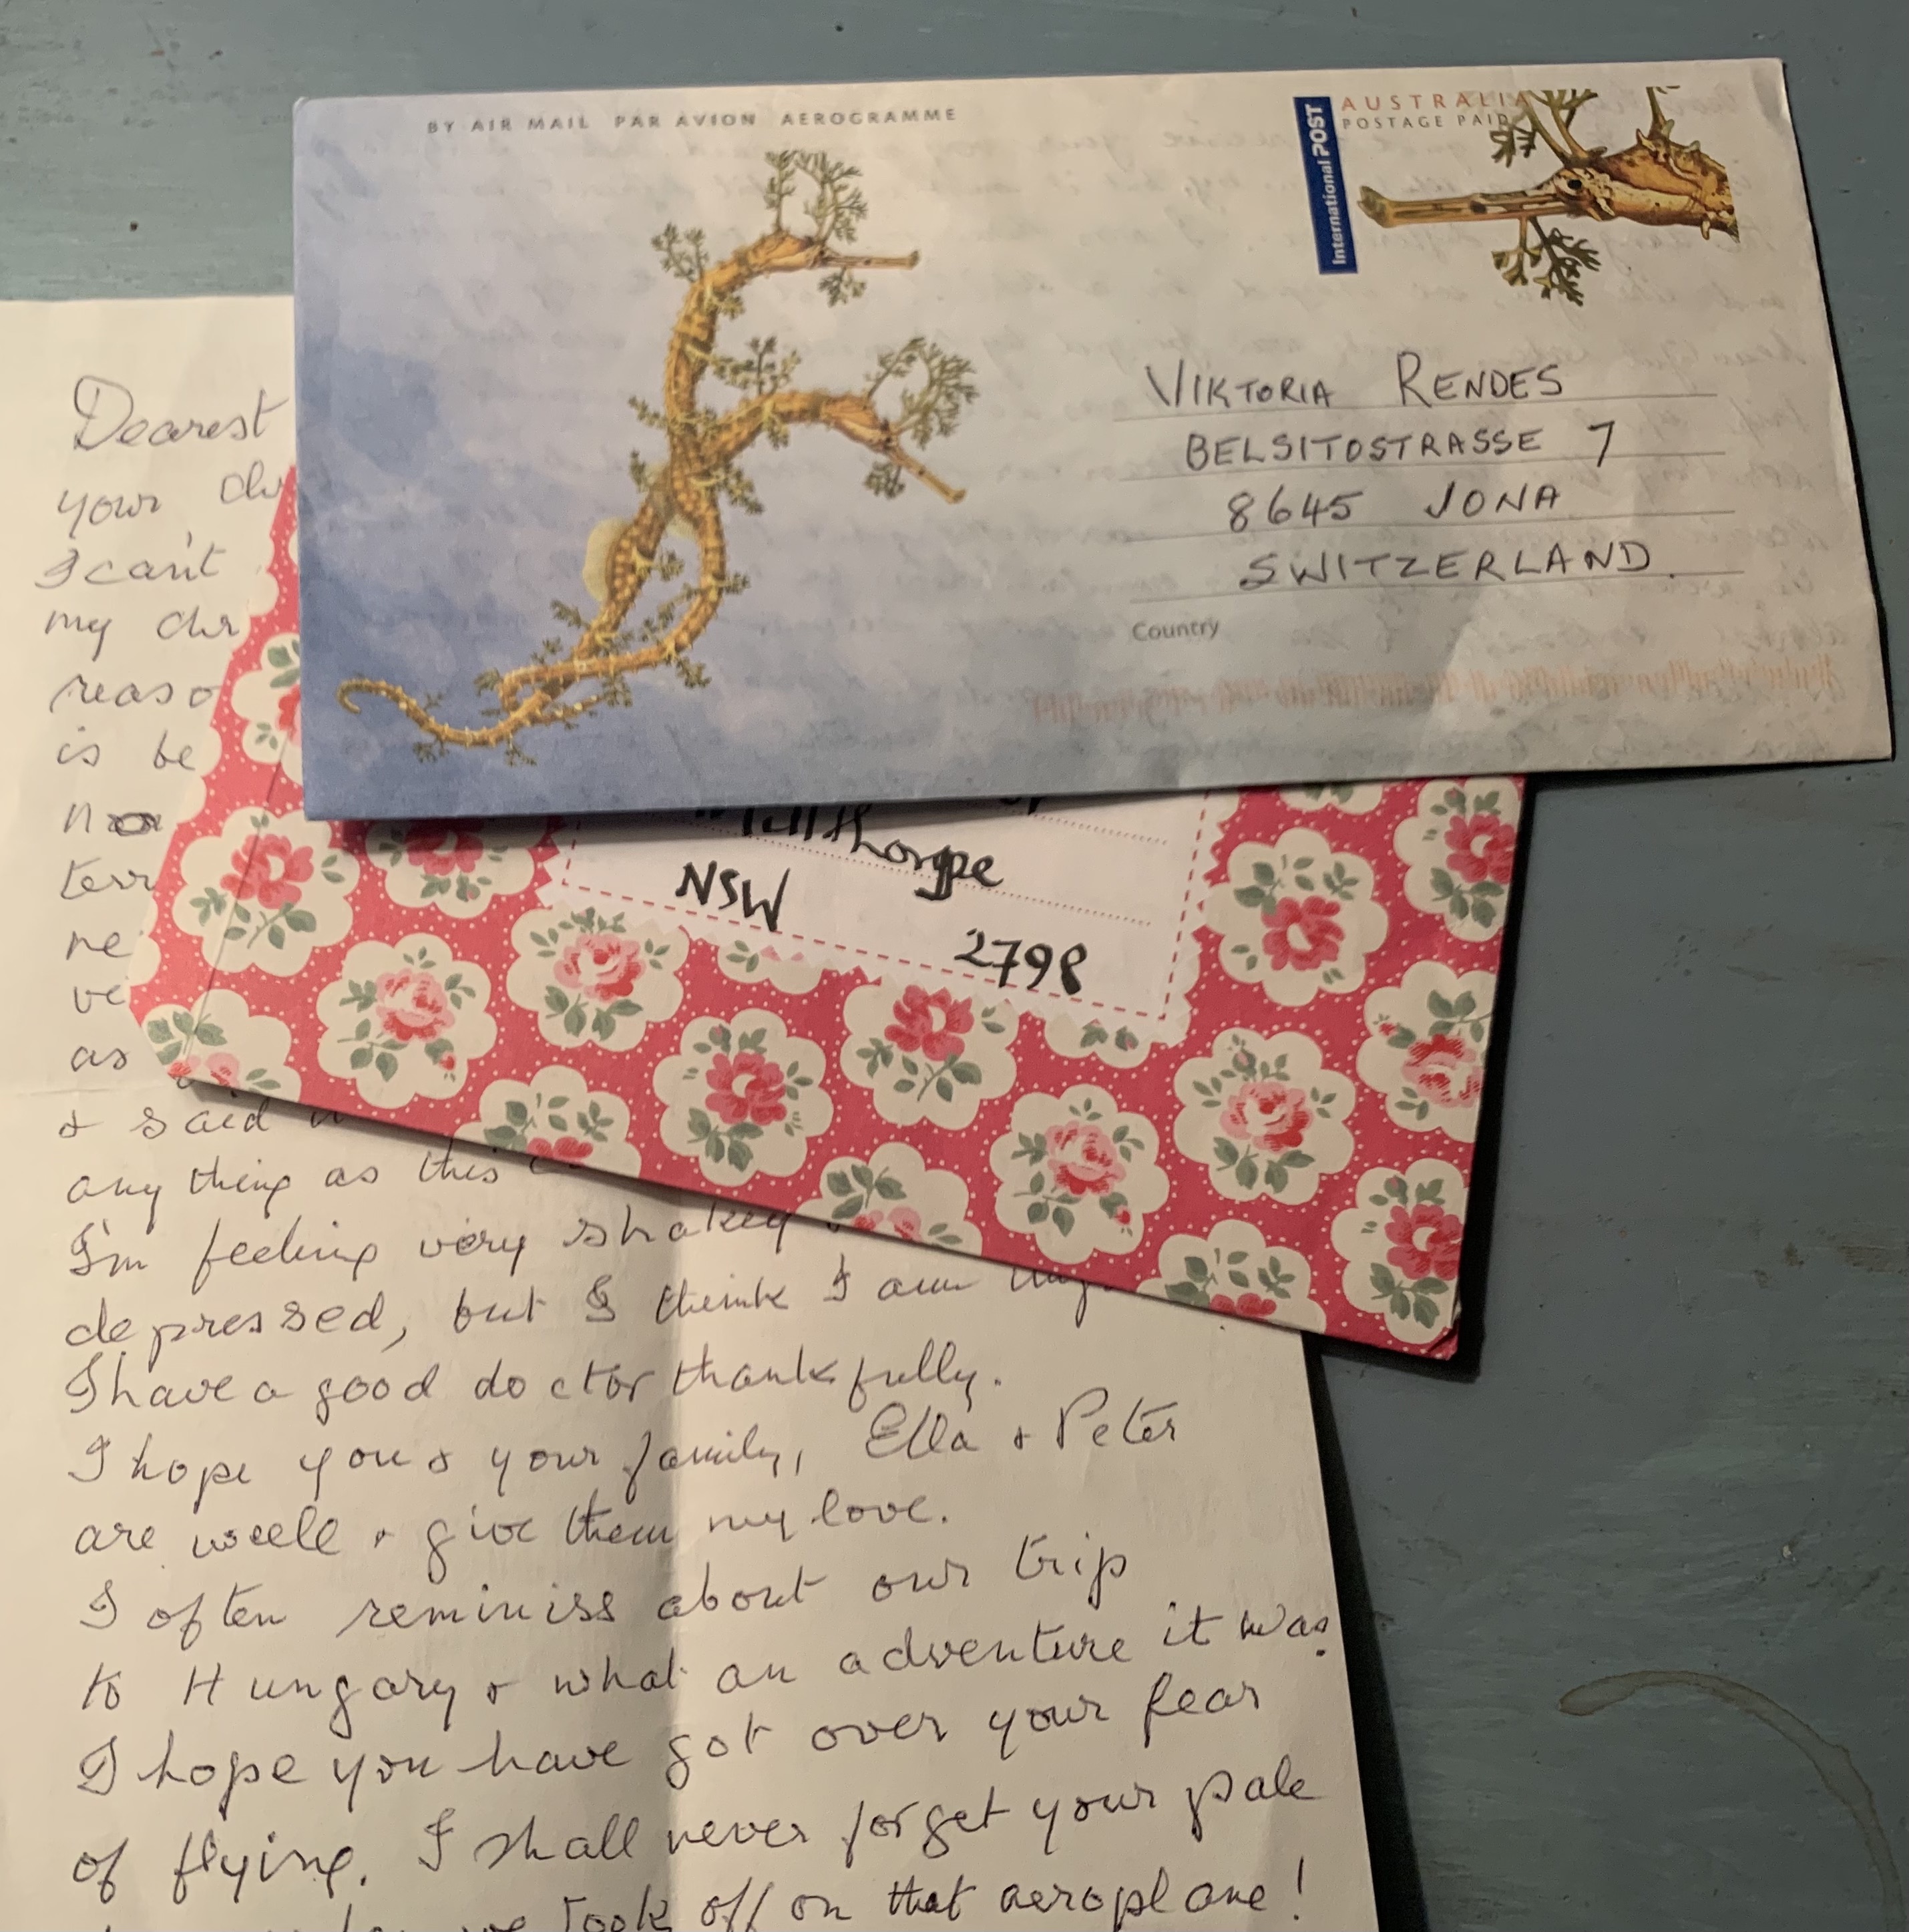 BY AIR MAIL PAR AVION AEROGRAMME
International POST
AUSTRALIA
POSTAGE PAID
VIKTORIA RENDES
BELSITOSTRASSE 7
8645 JONA
SWITZERLAND.
Country
Millthorpe
NSW
2798
Dearest
your
I can't
my
is be
as
& said
any thing as this
I'm feeling very shakey
depressed, but I think I am
I have a good doctor thankfully.
I hope you & your family, Ella & Peter
are well & give them my love.
I often reminiss about our trip
to Hungary & what an adventure it was
I hope you have got over your fear
of flying. I shall never forget your pale
we took off on that aeroplane!